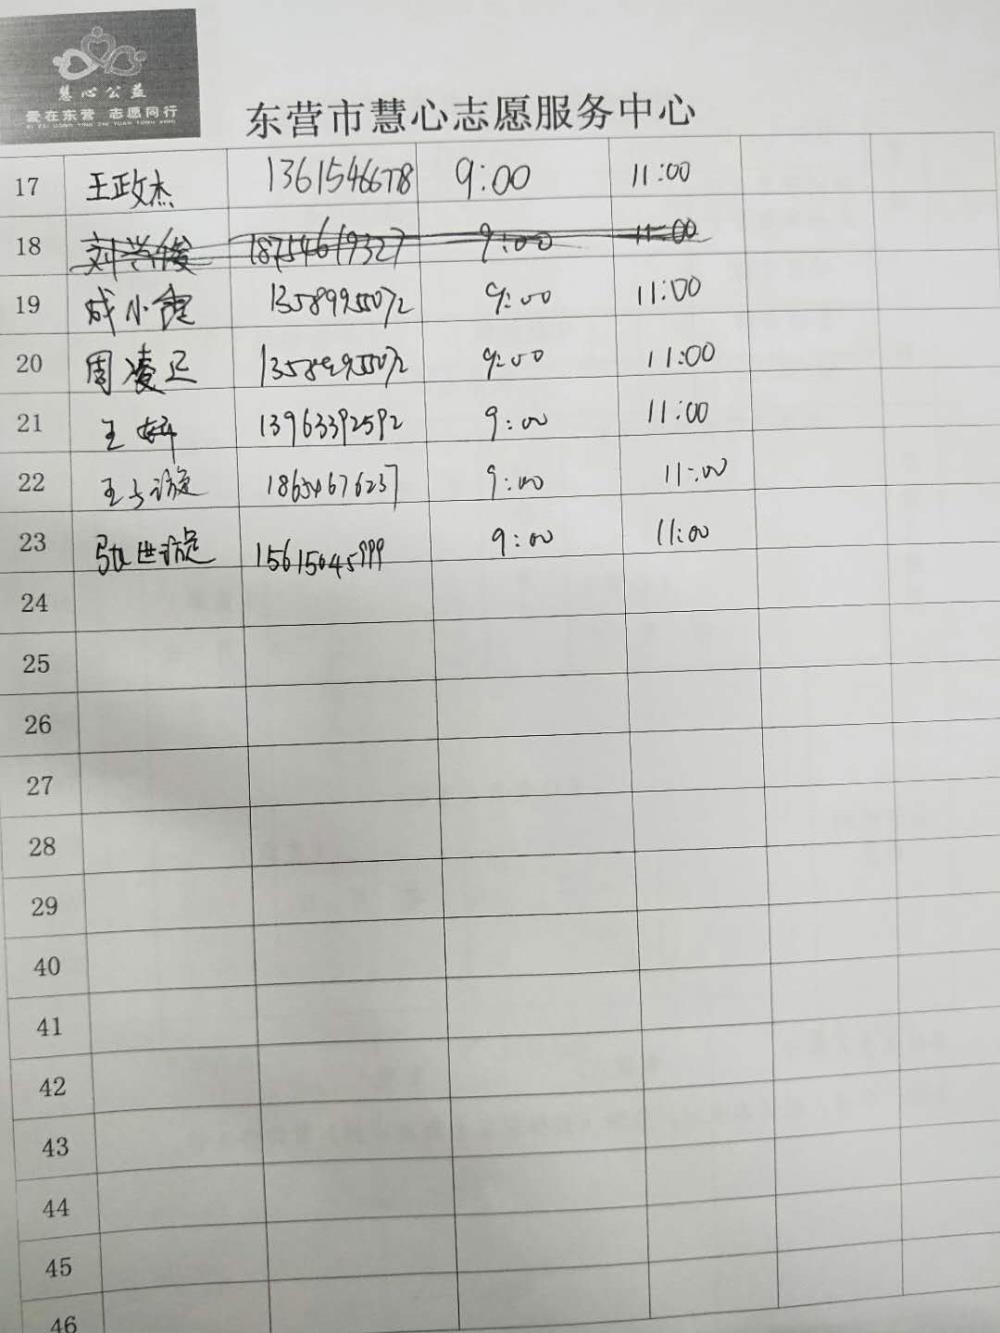 慧心公益
爱在东营 志愿同行
东营市慧心志愿服务中心
17 王政杰 1361546678 9:00 11:00
18 刘兴俊 18754619327 9:00 11:00
19 成小霞 13589955072 9:00 11:00
20 周凌正 13589955072 9:00 11:00
21 王婷 13963392592 9:00 11:00
22 王子漩 9:00 11:00
23 张世漩 15615045999 9:00 11:00
24
25
26
27
28
29
40
41
42
43
44
45
46